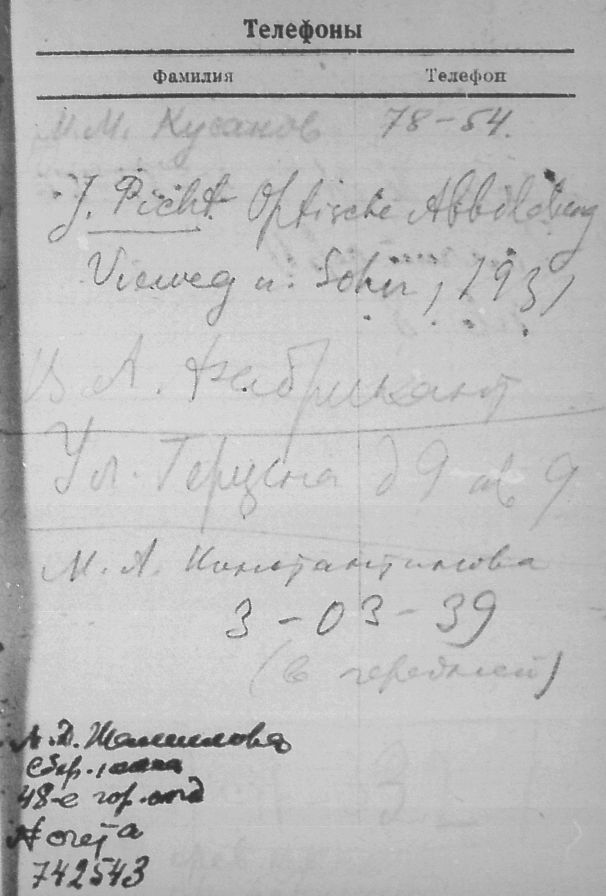 Телефоны
Фамилия Телефон
М.М. Кусаков 78-54.
J. Picht Optische Abbildung
Vieweg u. Sohn, 1931
В А. Фабрикант
Ул. Герцена д 9 кв 9
М. А. Константинова
3-03-39
(в передней)
А. Д. Шамилова
Сбер. касса
48-е гор. отд
№ счета
742543